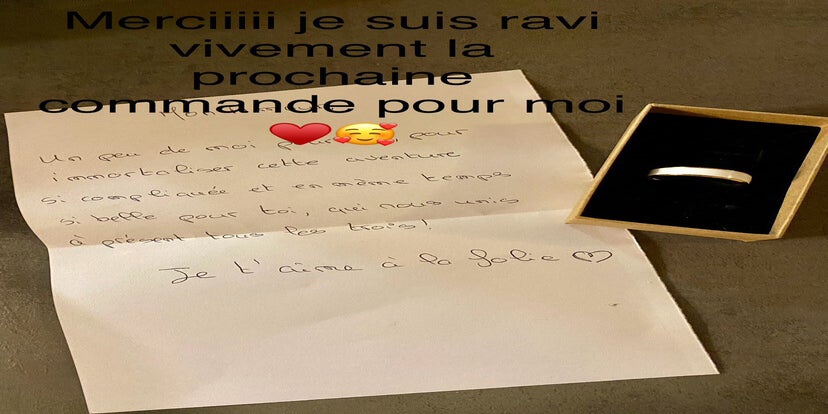 Merciiiii je suis ravi
vivement la
prochaine
commande pour moi
❤️🥰
Un peu de moi pour
immortaliser cette aventure
si compliquée et en même temps
si belle pour toi, qui nous unis
à présent tous les trois !
Je t'aime à la folie ♡